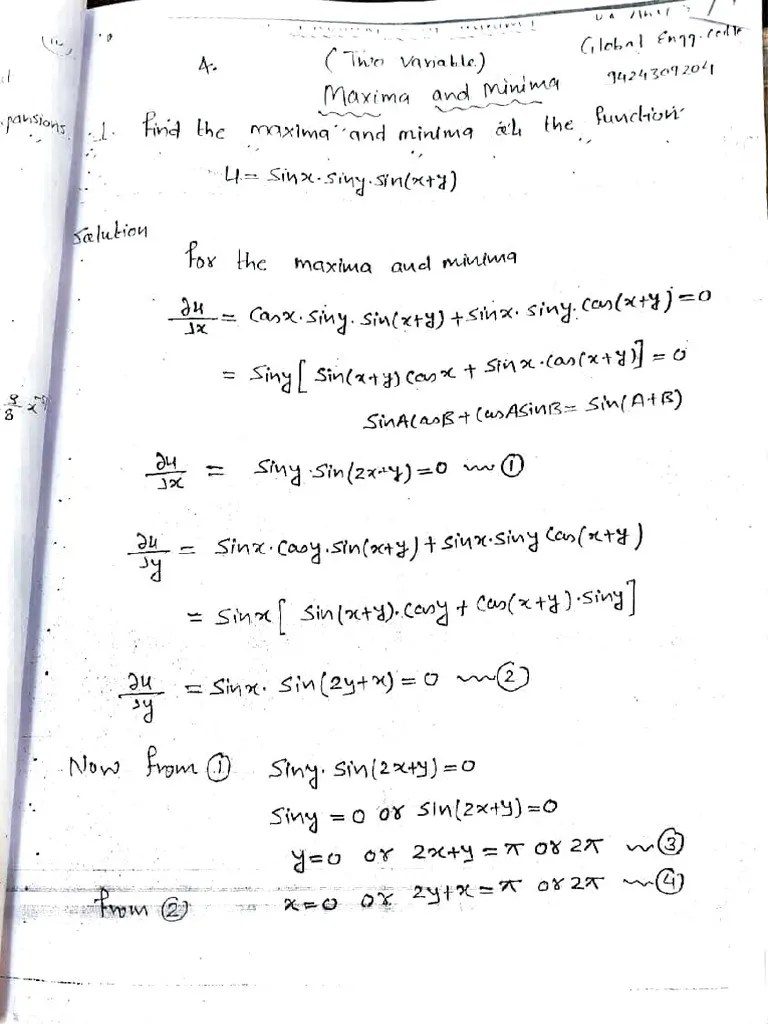 Global Engg.
9424309204
4.
(Two variable)
Maxima and Minima
pansions
1. Find the maxima and minima of the function
u = sinx.siny.sin(x+y)
Solution
For the maxima and minima
∂u/∂x = cosx.siny.sin(x+y) + sinx.siny.cos(x+y) = 0
= siny[sin(x+y)cosx + sinx.cos(x+y)] = 0
sinAcosB + cosAsinB = sin(A+B)
∂u/∂x = siny.sin(2x+y) = 0 ~ ①
∂u/∂y = sinx.cosy.sin(x+y) + sinx.siny cos(x+y)
= sinx[sin(x+y).cosy + cos(x+y).siny]
∂u/∂y = sinx.sin(2y+x) = 0 ~ ②
Now from ① siny.sin(2x+y) = 0
siny = 0 or sin(2x+y) = 0
y=0 or 2x+y = π or 2π ~ ③
from ② x=0 or 2y+x = π or 2π ~ ④